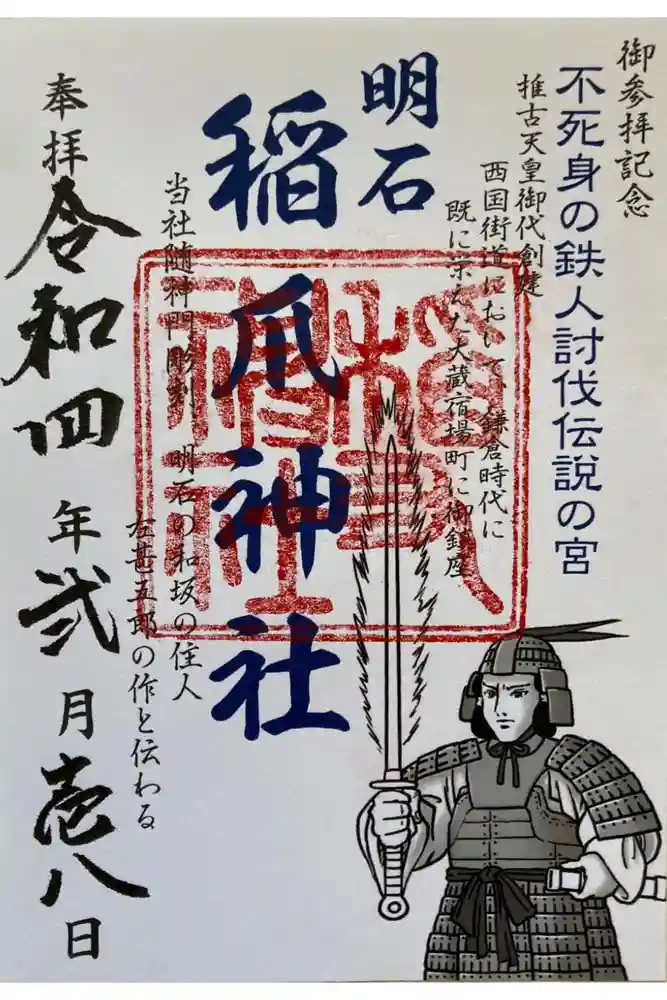 御参拝記念
不死身の鉄人討伐伝説の宮
推古天皇御代創建
西国街道において、鎌倉時代に
既に栄えた大蔵宿場町に御鎮座
明石
稲爪神社
当社随神門彫刻、明石の和坂の住人
左甚五郎の作と伝わる
奉拝
令和四年弐月壱八日
稲爪神社